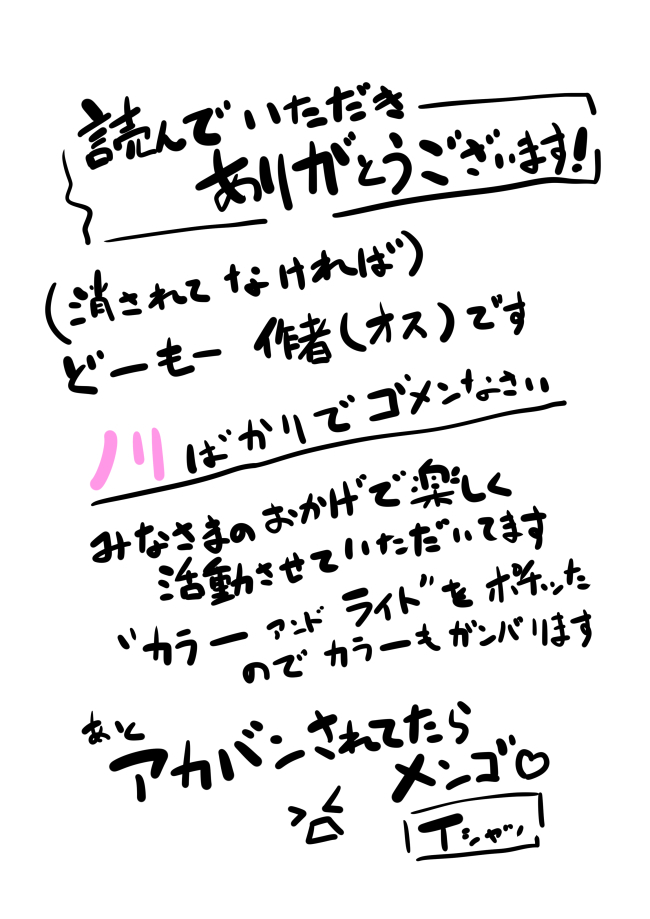 読んでいただき
ありがとうございます!
(消されてなければ)
どーもー 作者(オス)です
川ばかりでゴメンなさい
みなさまのおかげで楽しく
活動させていただいてます
"カラー アンド ライト"を ポチッた
のでカラーもガンバリます
あと
アカバンされてたら
メンゴ♡
Tシャツ